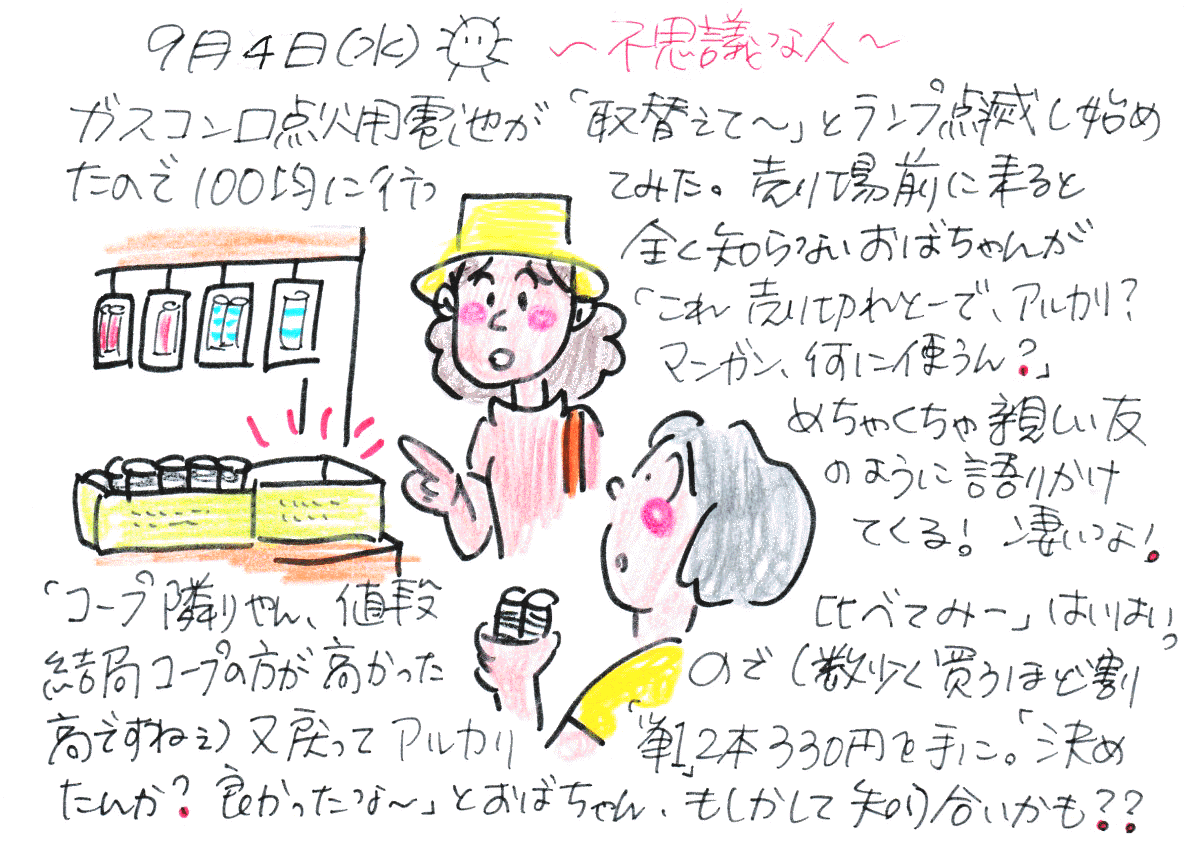 9月4日(水) 〜不思議な人〜
ガスコンロ点火用電池が「取替えて〜」とランプ点滅し始め
たので100均に行っ てみた。売り場前に来ると
全く知らないおばちゃんが
「これ売り切れとーで、アルカリ?
マンガン、何に使うん?」
めちゃくちゃ親しい友
のように語りかけ
てくる!凄いよ!
「コープ隣りやん、値段 比べてみー」はいはい、
結局コープの方が高かった ので(数少く買うほど割
高ですねぇ)又戻ってアルカリ「単1」2本330円を手に。「決め
たんか?良かったな〜」とおばちゃん、もしかして知り合いかも??